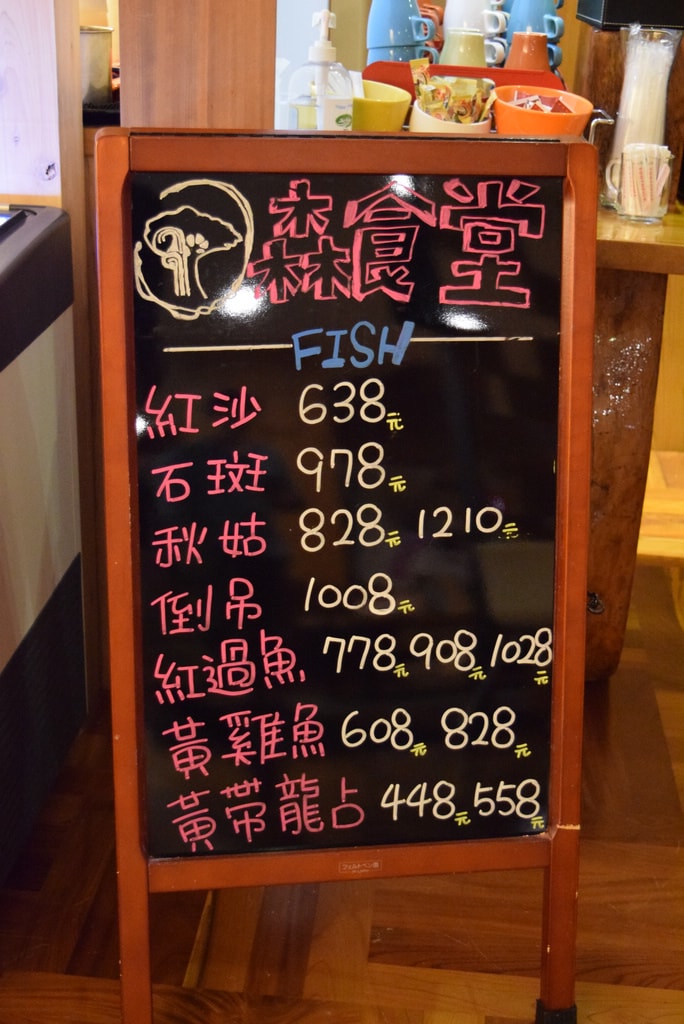 森食堂
FISH
紅沙 638元
石斑 978元
秋姑 828元 1210元
倒吊 1008元
紅過魚 778元 908元 1028元
黃雞魚 608元 828元
黃帶龍占 448元 558元